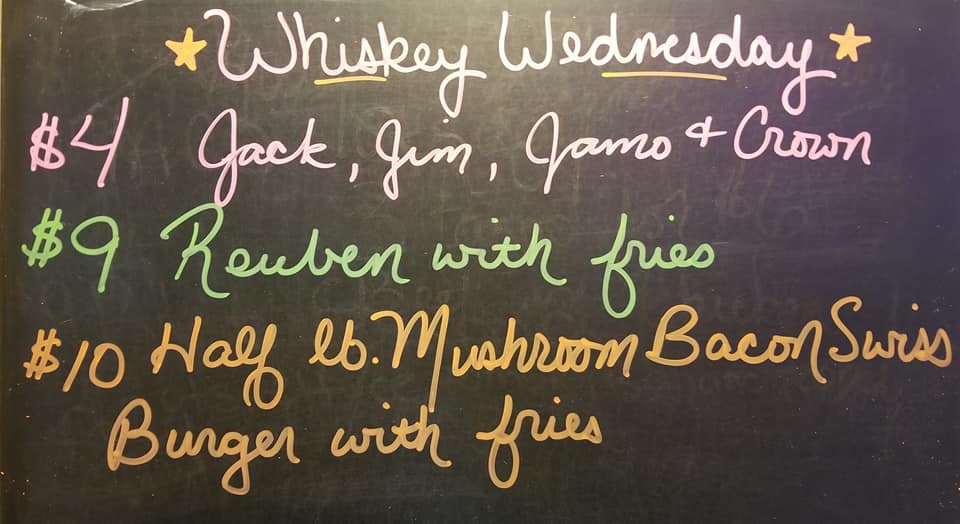 Whiskey Wednesday
$4 Jack, Jim, Jamo + Crown
$9 Reuben with fries
$10 Half lb. Mushroom Bacon Swiss
Burger with fries